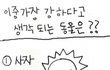 이중가장 강하다고
생각 되는 동물은??
① 사자